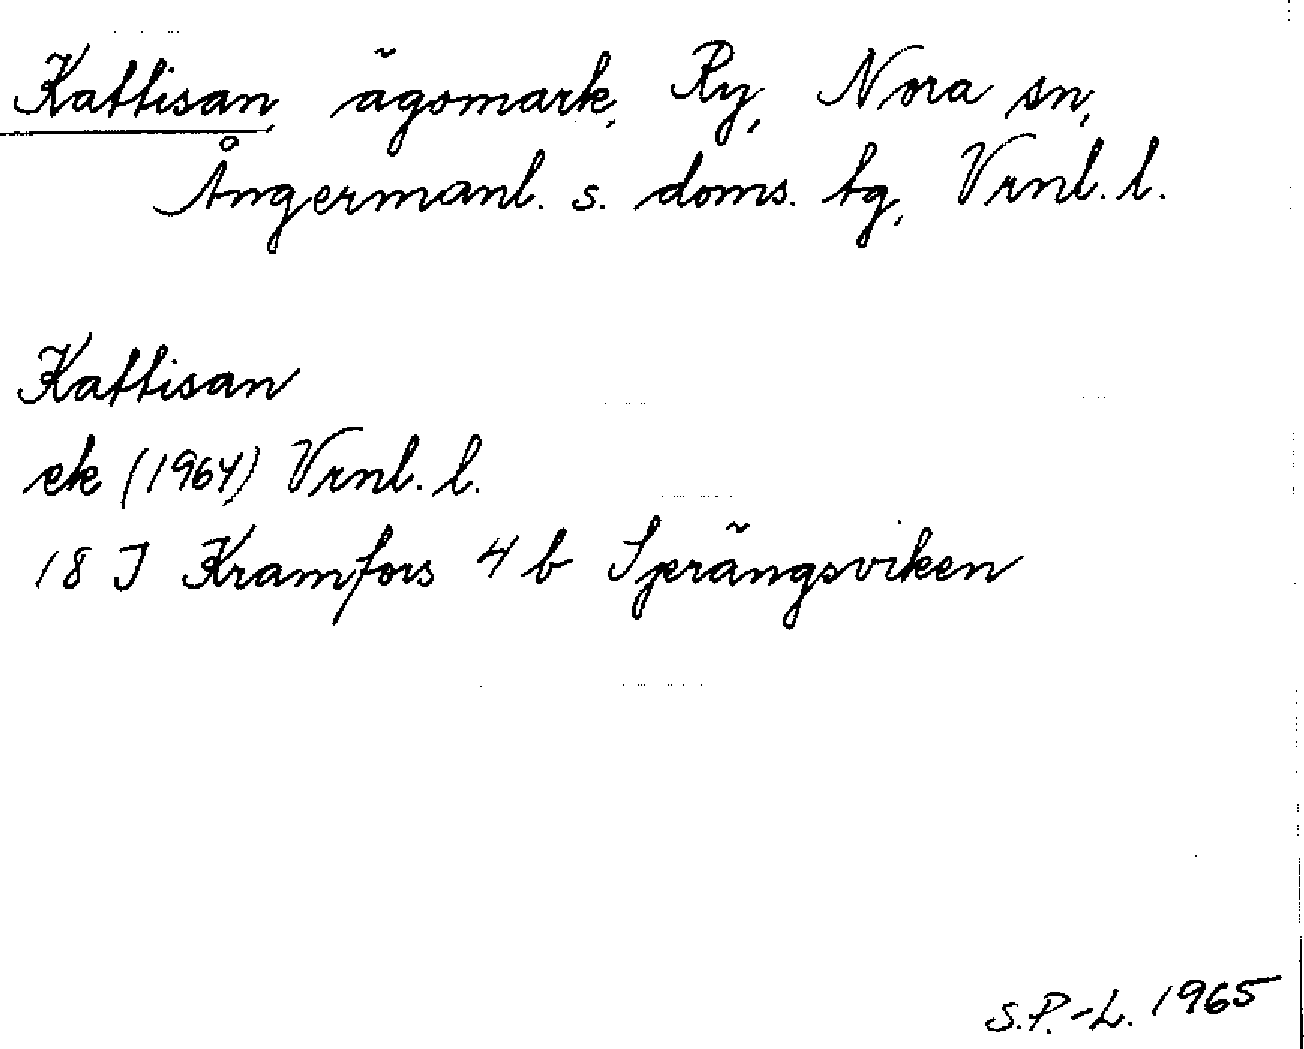 Kattisan, ägomark, Ry, Nora sn,
Ångermanl. s. doms. tg, Vrnl. l.
Kattisan
ek (1964) Vrnl. l.
18 I Kramfors 4 b Sprängsviken
S.P.-L. 1965